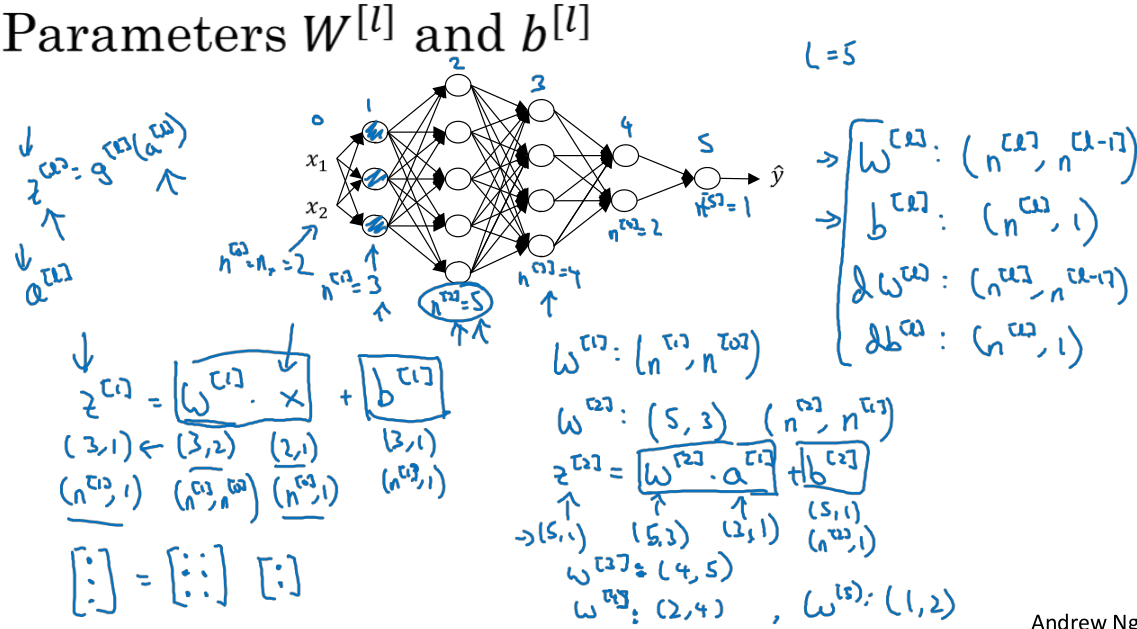 Parameters W^[l] and b^[l]
L = 5
0 1 2 3 4 5
x₁
x₂
ŷ
n^[0] = n_x = 2
n^[1] = 3
n^[2] = 5
n^[3] = 4
n^[4] = 2
n^[5] = 1
z^[l] = g^[l](a^[l])
a^[l]
W^[l] : (n^[l], n^[l-1])
b^[l] : (n^[l], 1)
dW^[l] : (n^[l], n^[l-1])
db^[l] : (n^[l], 1)
z^[1] = W^[1] · x + b^[1]
(3,1) ← (3,2) (2,1) (3,1)
(n^[1], 1) (n^[1], n^[0]) (n^[0], 1) (n^[1], 1)
W^[1] : (n^[1], n^[0])
W^[2] : (5, 3) (n^[2], n^[1])
z^[2] = W^[2] · a^[1] + b^[2]
→ (5,1) (5,3) (3,1) (5,1)
(n^[2], 1)
W^[3] : (4, 5)
W^[4] : (2, 4) , W^[5] : (1, 2)
Andrew Ng